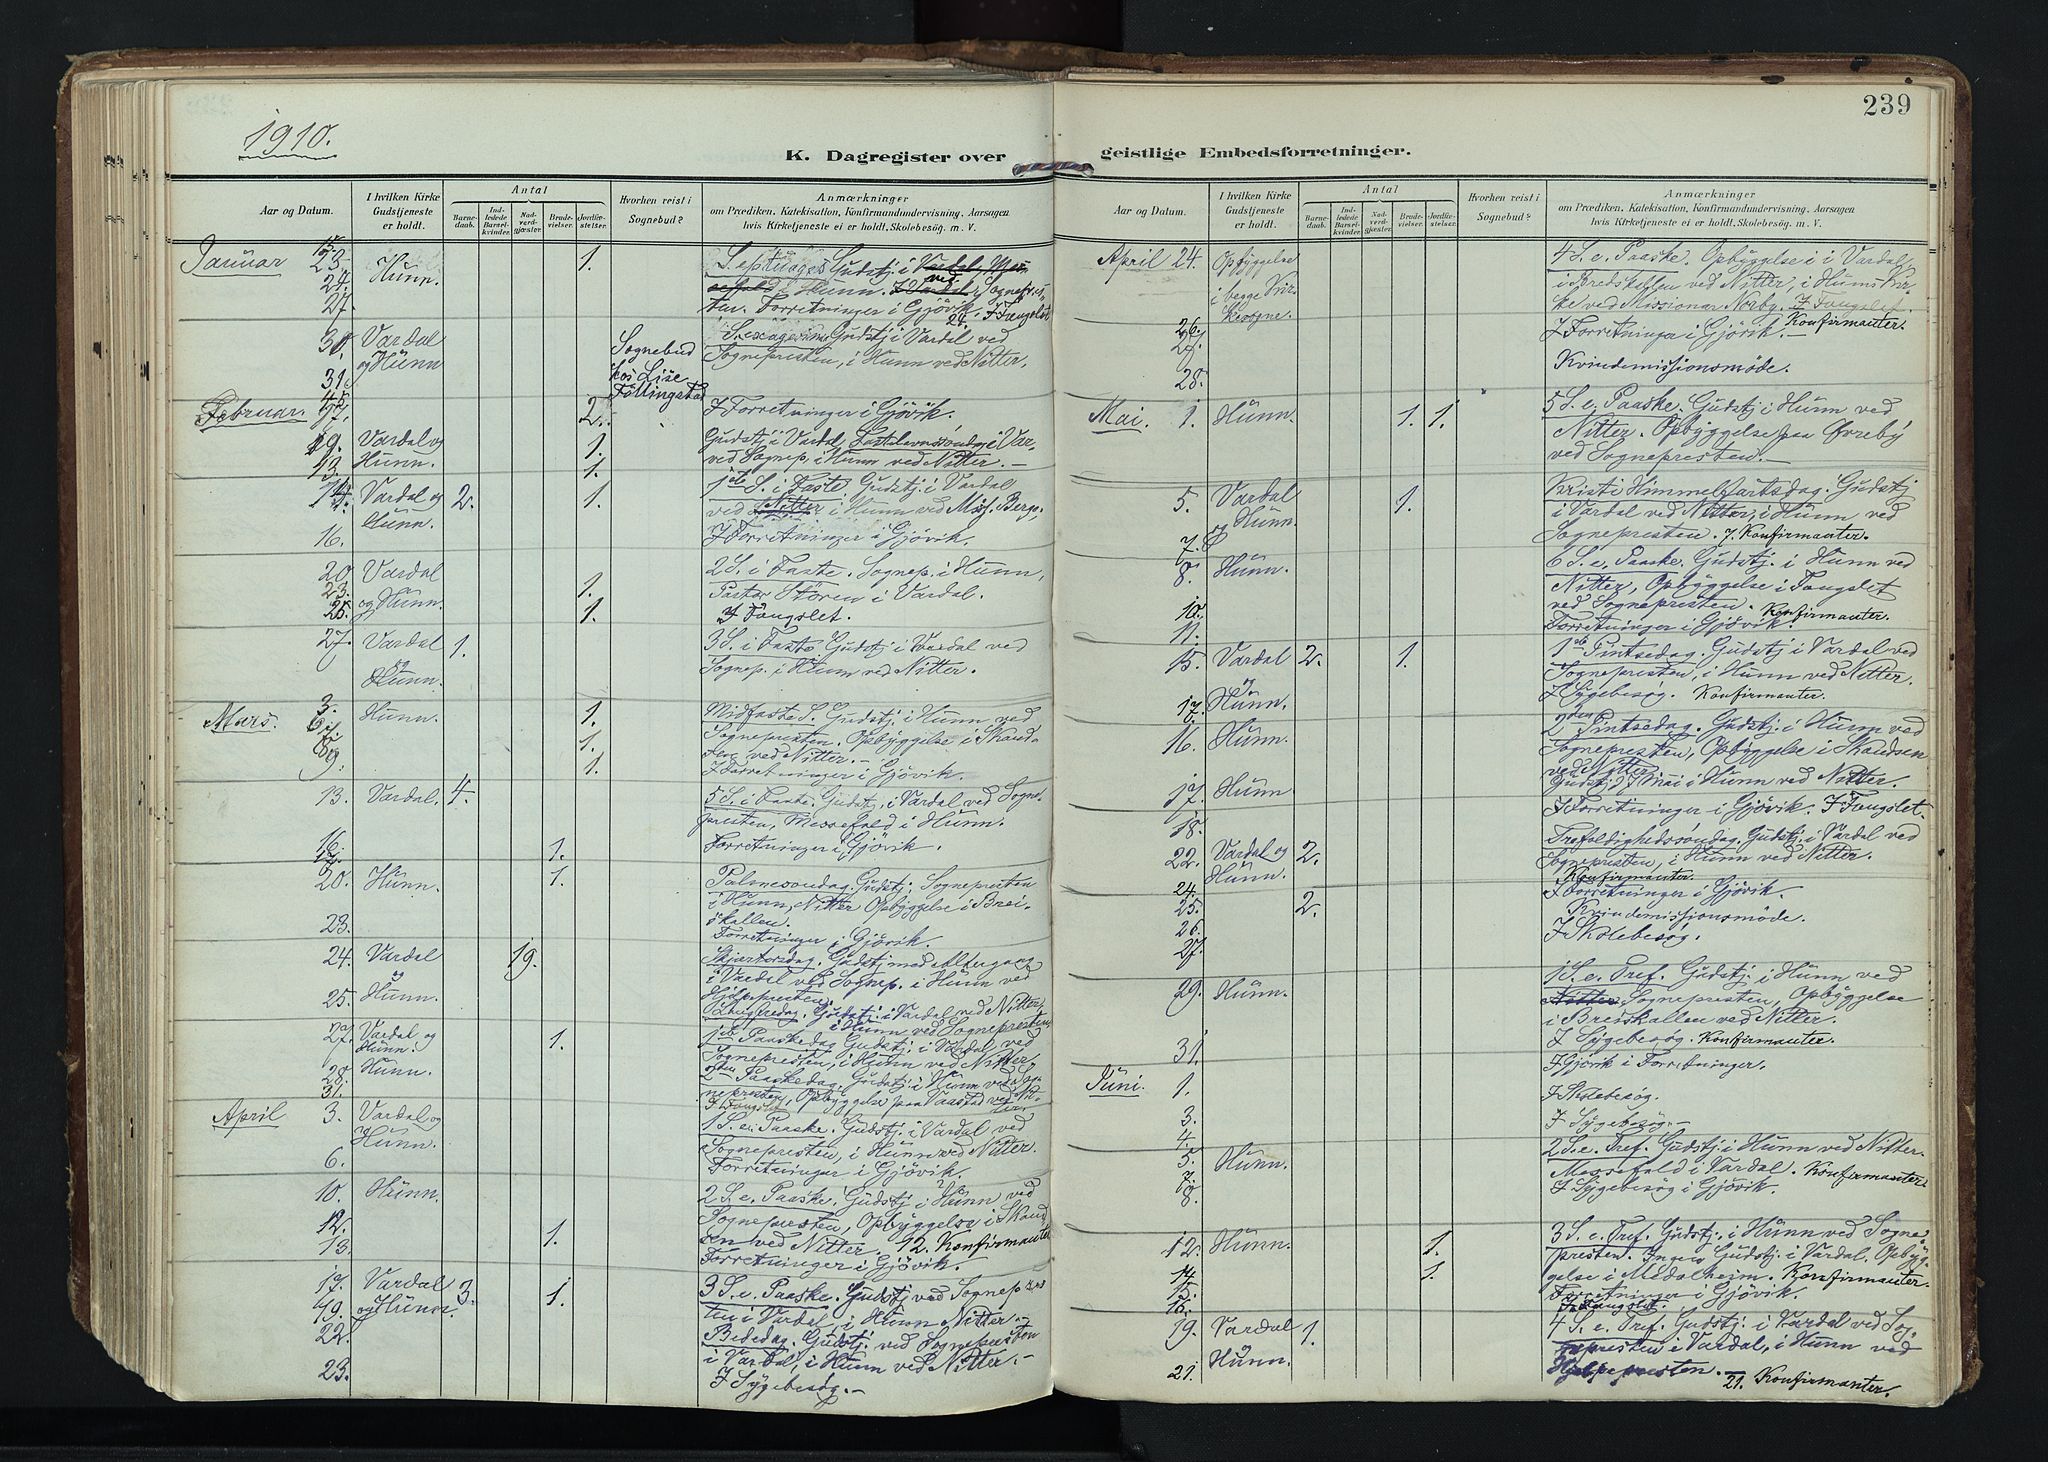 239
1910.
K. Dagregister over geistlige Embedsforretninger.
Aar og Datum.
I hvilken Kirke Gudstjeneste er holdt.
Antal
Barnedaab.
Indledede Barselkvinder.
Nadverdgjæster.
Brudevielser.
Jordfæstelser.
Hvorhen reist i Sognebud?
Anmærkninger
om Prædiken, Katekisation, Konfirmandundervisning, Aarsagen
hvis Kirketjeneste ei er holdt, Skolebesøg m. V.
Januar 23. Hunn. 1. Gudstj. i
24. Hunn. Sognepres-
27. ten. Forretninger i Gjövik. I Fængslet
30. Vardal Sognebud Sexagesima Gudstj. i Vardal ved
og Hunn hos Lise Sognepresten, i Hunn ved Nitter.
31. Föllingstad
Februar. 2. I Forretninger i Gjövik.
Vardal og 1. Gudst. i Vardal, Fastelavnssöndag i Var.
13. Hunn. 1. ved Sognep. i Hunn ved Nitter. —
14. Vardal og 2. 1. 1ste S. i Faste Gudstj. i Vardal
Hunn. ved Nitter i Hunn ved Miss. Berge,
16. I Forretninger i Gjövik.
20. Vardal 2 S. i Faste. Sognep. i Hunn,
23. og Hunn. 1. Pastor Stören i Vardal.
25. 1. I Fængslet.
27. Vardal 1. 3 S. i Faste Gudstj. i Vardal ved
og Hunn. Sognep. i Hunn ved Nitter.
Mars. 3. Hunn. 1. Midfaste S. Gudstj. i Hunn ved
6. 1. Sognepresten. Opbyggelse i Skand-
8. sen ved Nitter. —
9. 1. I Forretninger i Gjövik.
13. Vardal. 4. 5 S. i Faste. Gudstj. i Vardal ved Sogne-
presten, Messefald i Hunn.
16. 1. Forretninger i Gjövik.
20. Hunn. 1. Palmesöndag. Gudstj. Sognepresten
i Hunn, Nitter Opbyggelse i Brei-
23. skallen.
Forretninger i Gjövik.
24. Vardal 19. Skjærtorsdag. Gudstj. med Altergang
og i Vardal ved Sognep. i Hunn ved
25. Hunn. Hjelpepresten.
Langfredag. Gudstj. i Vardal ved Nitter,
i Hunn ved Sognepresten
27. Vardal og 1. 1ste Paaskedag Gudstj. i Vardal ved
Hunn. Sognepresten, i Hunn ved Nitter.
28. Hunn. 2den Paaskedag Gudstj. i Hunn ved Sog-
31. nepresten, Opbyggelse paa Vaastad ved Nit-
ter.
I Fængslet
April 3. Vardal og 1 S. e. Paaske. Gudstj. i Vardal ved
Hunn. Sognepresten, i Hunn ved Nitter.
6. Forretninger i Gjövik.
10. Hunn. 2 S. e. Paaske. Gudstj. i Hunn ved
12. Sognepresten, Opbyggelse i Skand-
13. 1. sen ved Nitter. 12. Konfirmanter
Forretninger i Gjövik.
17. Vardal 3. 1. 3 S. e. Paaske. Gudstj. ved Sognepres
19. og Hunn. ten i Vardal, i Hunn Nitter. —
22. Bededag. Gudstj. ved Sognepresten
i Vardal, i Hunn ved Nitter. —
23. I Sygebesög. —
April 24. Opbyggelse 4 S. e. Paaske. Opbyggelse i Vardal,
i begge Kir- i Bredskallen ved Nitter, i Hunns Kir-
kesogne. ke ved Missionær Norby. I Fængslet.
26. Konfirmanter.
27. I Forretninger i Gjövik. —
28. Kvindemissionsmöde.
Mai. 1. Hunn. 1. 1. 5 S. e. Paaske. Gudstj. i Hunn ved
Nitter. Opbyggelse paa Övreby
ved Sognepresten. —
5. Vardal 1. Kristi Himmelfartsdag. Gudstj.
og Hunn. i Vardal ved Nitter, i Hunn ved
7. Sognepresten. 7. Konfirmanter.
8. Hunn. 6 S. e. Paaske. Gudstj. i Hunn ved
Nitter, Opbyggelse i Fængslet
10. ved Sognepresten. Konfirmanter.
11. Forretninger i Gjövik.
15. Vardal 2. 1. 1ste Pintsedag. Gudstj. i Vardal ved
og Sognepresten, i Hunn ved Nitter.
17. Hunn. I Sygebesög. Konfirmanter.
16. Hunn. 2den Pintsedag. Gudstj. i Hunn ved
Sognepresten, Opbyggelse i Skandsen
ved Nitter.
17. Hunn Gudstj. 17 Mai i Hunn ved Nitter.
18. I Forretninger i Gjövik. I Fængslet.
22. Vardal og 2. Trefoldighedssöndag. Gudstj. i Vardal ved
Hunn. Sognepresten, i Hunn ved Nitter.
24. Konfirmanter.
25. 2. I Forretninger i Gjövik.
26. Kvindemissionsmöde.
27. I Skolebesög.
29. Hunn. 1 S. e. Tref. Gudstj. i Hunn ved
Nitter Sognepresten, Opbyggelse
i Breiskallen ved Nitter.
31. I Sygebesög. Konfirmanter.
Juni. 1. I Gjövik i Forretninger.
3. I Skolebesög.
4. I Sygebesög. —
5. Hunn. 2 S. e. Tref. Gudstj. i Hunn ved Nitter.
7. Messefald i Vardal. Konfirmanter.
8. I Sygebesög i Gjövik.
12. Hunn. 1. 3 S. e. Tref. Gudstj. i Hunn ved Sogne-
presten. Ingen Gudstj. i Vardal. Opbyg-
14. 1. gelse i Medalheim. Konfirmanter.
15. Forretninger i Gjövik.
16. I Fængslet.
19. Vardal 1. 4 S. e. Tref. Gudstj. i Vardal ved Sog-
nepresten i Vardal, i Hunn ved
21. Hunn. Hjelpepresten. —
21. Konfirmanter.